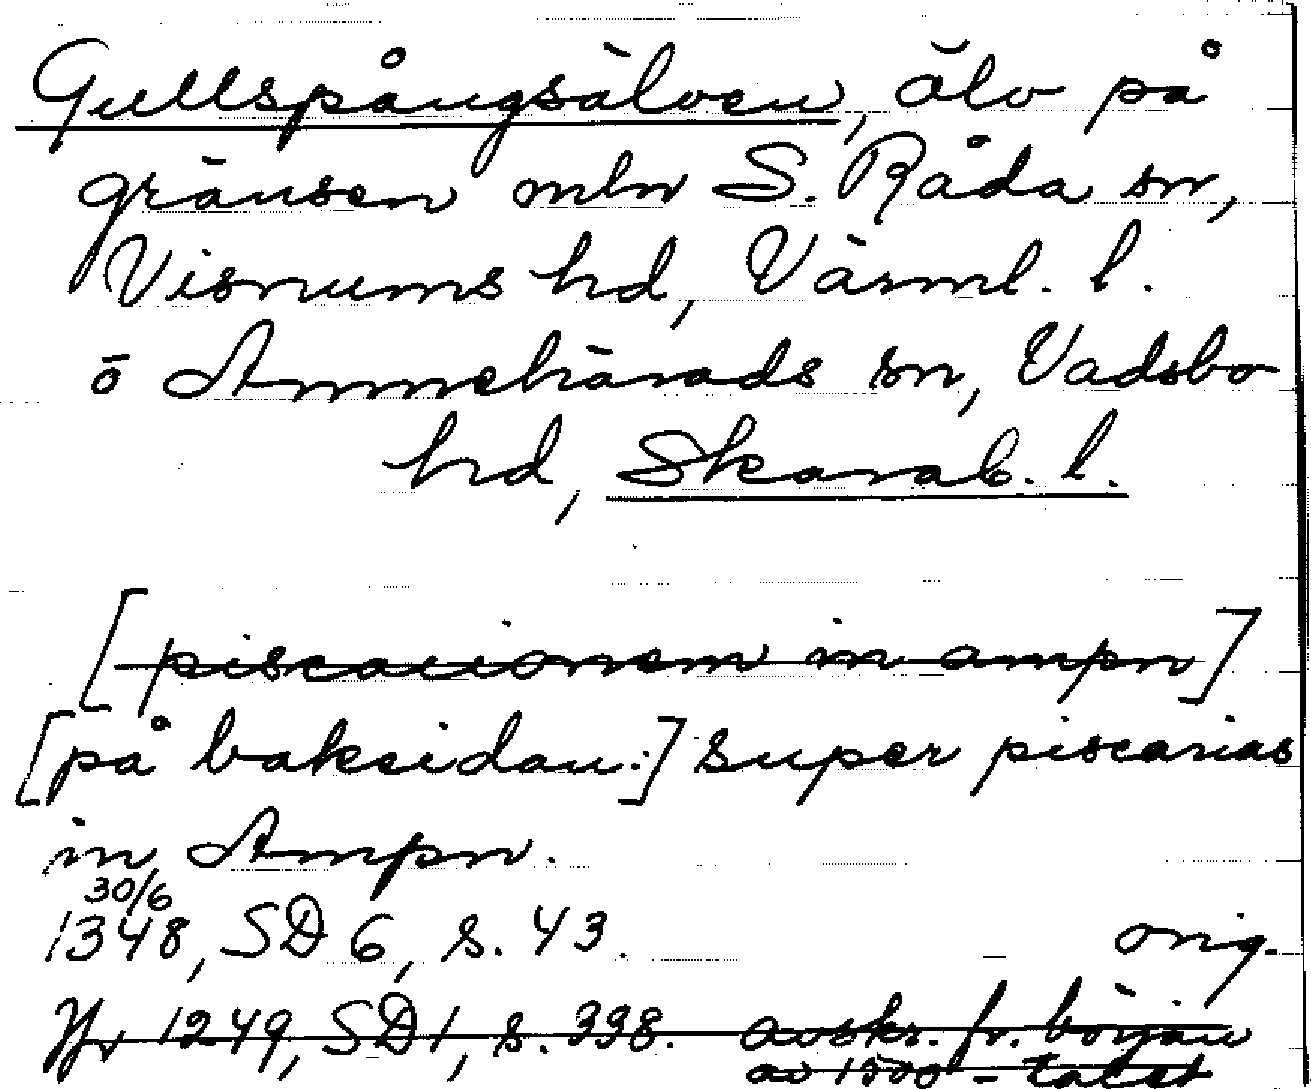 Gullspångsälven, älv på
gränsen mln S. Råda sn,
Visnums hd, Värml. l.
o Amnehärads sn, Vadsbo
hd, Skarab. l.
[piscacionem in ampn]
[på baksidan:] super piscarias
in Ampn.
30/6
1348, SD 6, s. 43. orig.
Jfr 1249, SD 1, s. 398. avskr. fr. början
av 1500-talet